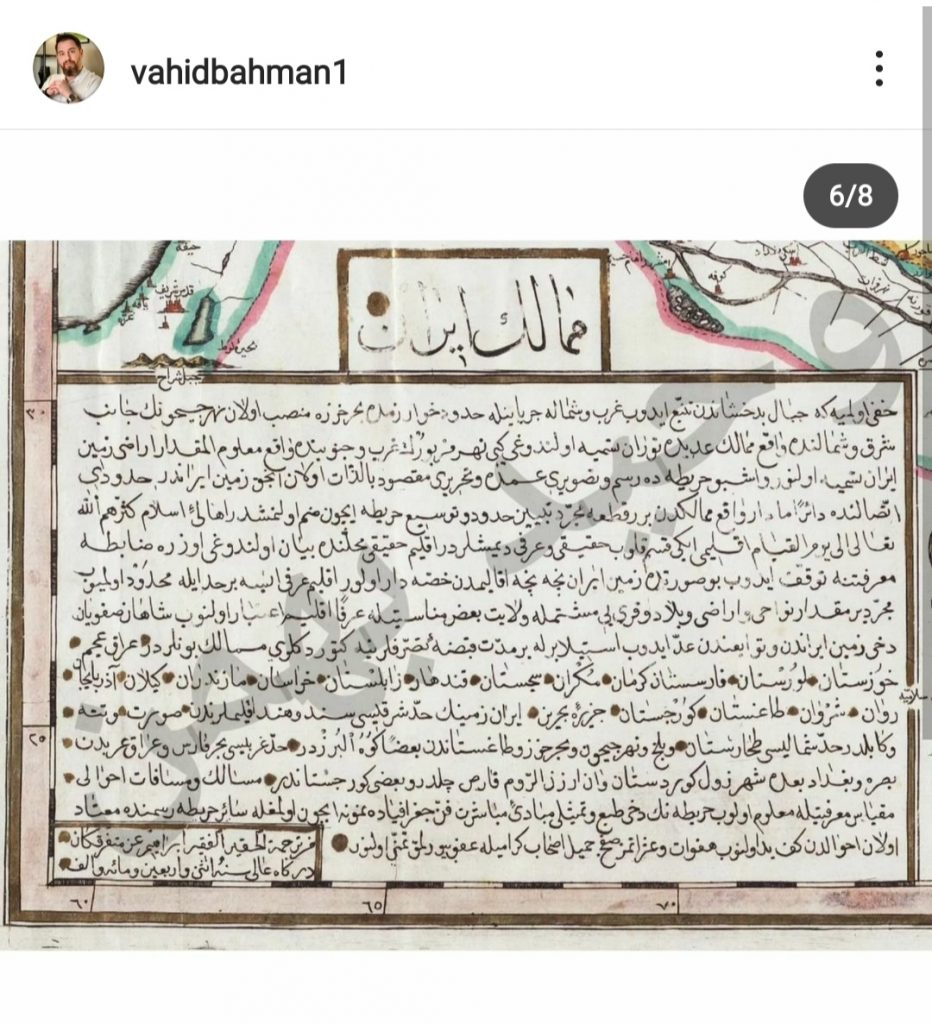 vahidbahman1
6/8
ممالك ایران
قدس شریف
غزه
یافه
كوفه
نهر فرات
خفی اولمیه كه جبال بدخشاندن تنبع ایدوب غرب و شماله جریانیله حدود خوارزمده بحر خزره منصب اولان نهر جیحونك جانب
شرق و شمالنده واقع ممالك عدیده توران تسمیه اولندوغی كبی نهر مزبورك غرب و جنوبنده واقع معلوم المقدار اراضی زمین
ایران تسمیه اولنور و اشبو خریطه ده رسم و تصویری عمده و تحریری مقصود بالذات اولان انجق زمین ایراندر حدودی
اتصالنده دائرا مادار واقع ممالكدن بر قطعه مجرد تبیین حدود و توسیع خریطه ایچون ضم اولنمشدر اهالئ اسلام كثرهم الله
تعالی الی یوم القیام اقلیمی ایكی قسم قلوب حقیقی و عرفی دیمشلردر اقلیم حقیقی محلنده بیان اولندوغی اوزره ضابطه
معرفتنه توقفت ایدوب بو صورتده زمین ایران نجه نجه اقالیمدن حصه دار اولور اقلیم عرفی ایسه بر حد ایله محدود اولمیوب
مجرد بر مقدار نواحی و اراضی و بلاد و قری یی مشتمله ولایت بعض مناسبتیله عرفا اقلیم اعتبار اولنوب شاهان صفویان
دخی زمین ایراندن و توابعندن عد ایدوب استیلا برله بر مدت قبضهٔ تصرفلرینه كتوردوكلری ممالك بونلردر عراق عجم
خوزستان لورستان فارسستان كرمان مكران سجستان قندهار زابلستان خراسان مازندران كیلان آذربایجان
روان شروان طاغستان كورجستان جزیرهٔ بحرین ایران زمینك حد شرقیسی سند و هند اقلیملریدن صورت مرتبه
و كابلدر حد شمالیسی طخارستان و بلخ و نهر جیحون و بحر خزر و طاغستاندن بعضا كوه البرزدر حد غربیسی بحر فارس و عراق عربدن
بصره و بغداد بعده شهرزول كوردستان وان ارزن الروم قارص چلدر و بعضی كورجستاندر مسالك و مسافات احوالی
مقیاس معرفتیله معلوم اولوب خریطه نك دخی طبع و تمثیلی مبادئ مباشرت فن جغرافیاده نمونه ایچون اولمغله سائر خریطه رسمنده معتاد
اولان احوالدن كف ید اولنوب هفوات و عثراتمز صفح جمیل اصحاب كرامیله عفو بیورلمق تمنی اولنور
حرره الحقیر الفقیر ابراهیم عن متفرقكان
دركاه عالی سنه اثنی و اربعین و مائه و الف
٣٠
٢٥
٦٠
٦٥
٧٠